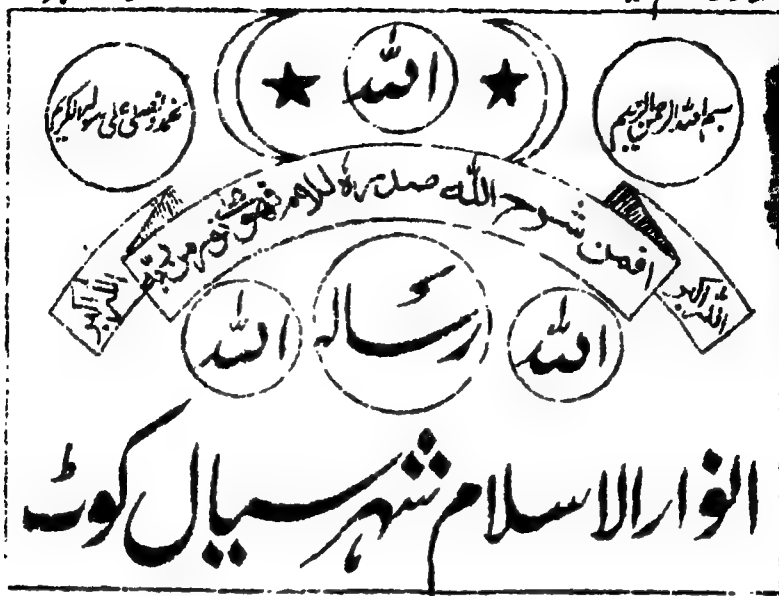 بسم اللہ الرحمن الرحیم
اللہ
نحمدہ و نصلی علی رسولہ الکریم
افمن شرح اللہ صدرہ للاسلام فھو علی نور من ربہ
اللہ اکبر
اللہ اکبر
اللہ
رسالہ
اللہ
انوار الاسلام شہر سیال کوٹ